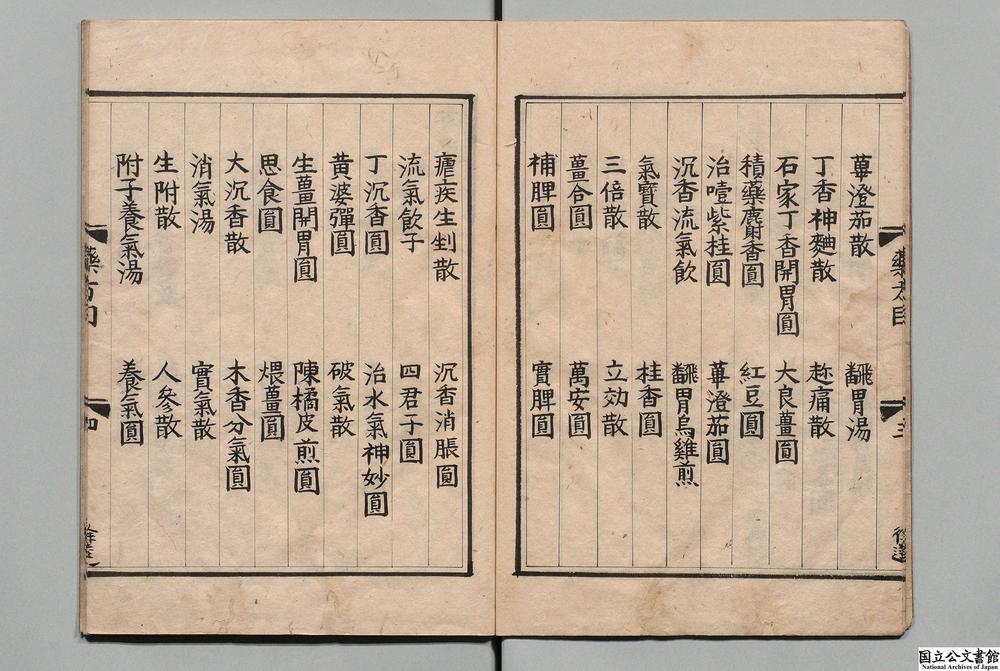 蓽澄茄散　飜胃湯
丁香神麯散　趂痛散
石家丁香開胃圓　大良薑圓
積藥麝香圓　紅豆圓
治噎紫桂圓　蓽澄茄圓
沉香流氣飲　飜胃烏雞煎
氣寶散　桂香圓
三倍散　立効散
薑合圓　萬安圓
補脾圓　實脾圓
瘧疾生剉散　沉香消脹圓
流氣飲子　四君子圓
丁沉香圓　治水氣神妙圓
黃婆彈圓　破氣散
生薑開胃圓　陳橘皮煎圓
思食圓　煨薑圓
大沉香散　木香分氣圓
消氣湯　實氣散
生附散　人參散
附子養氣湯　養氣圓
國立公文書館
National Archives of Japan